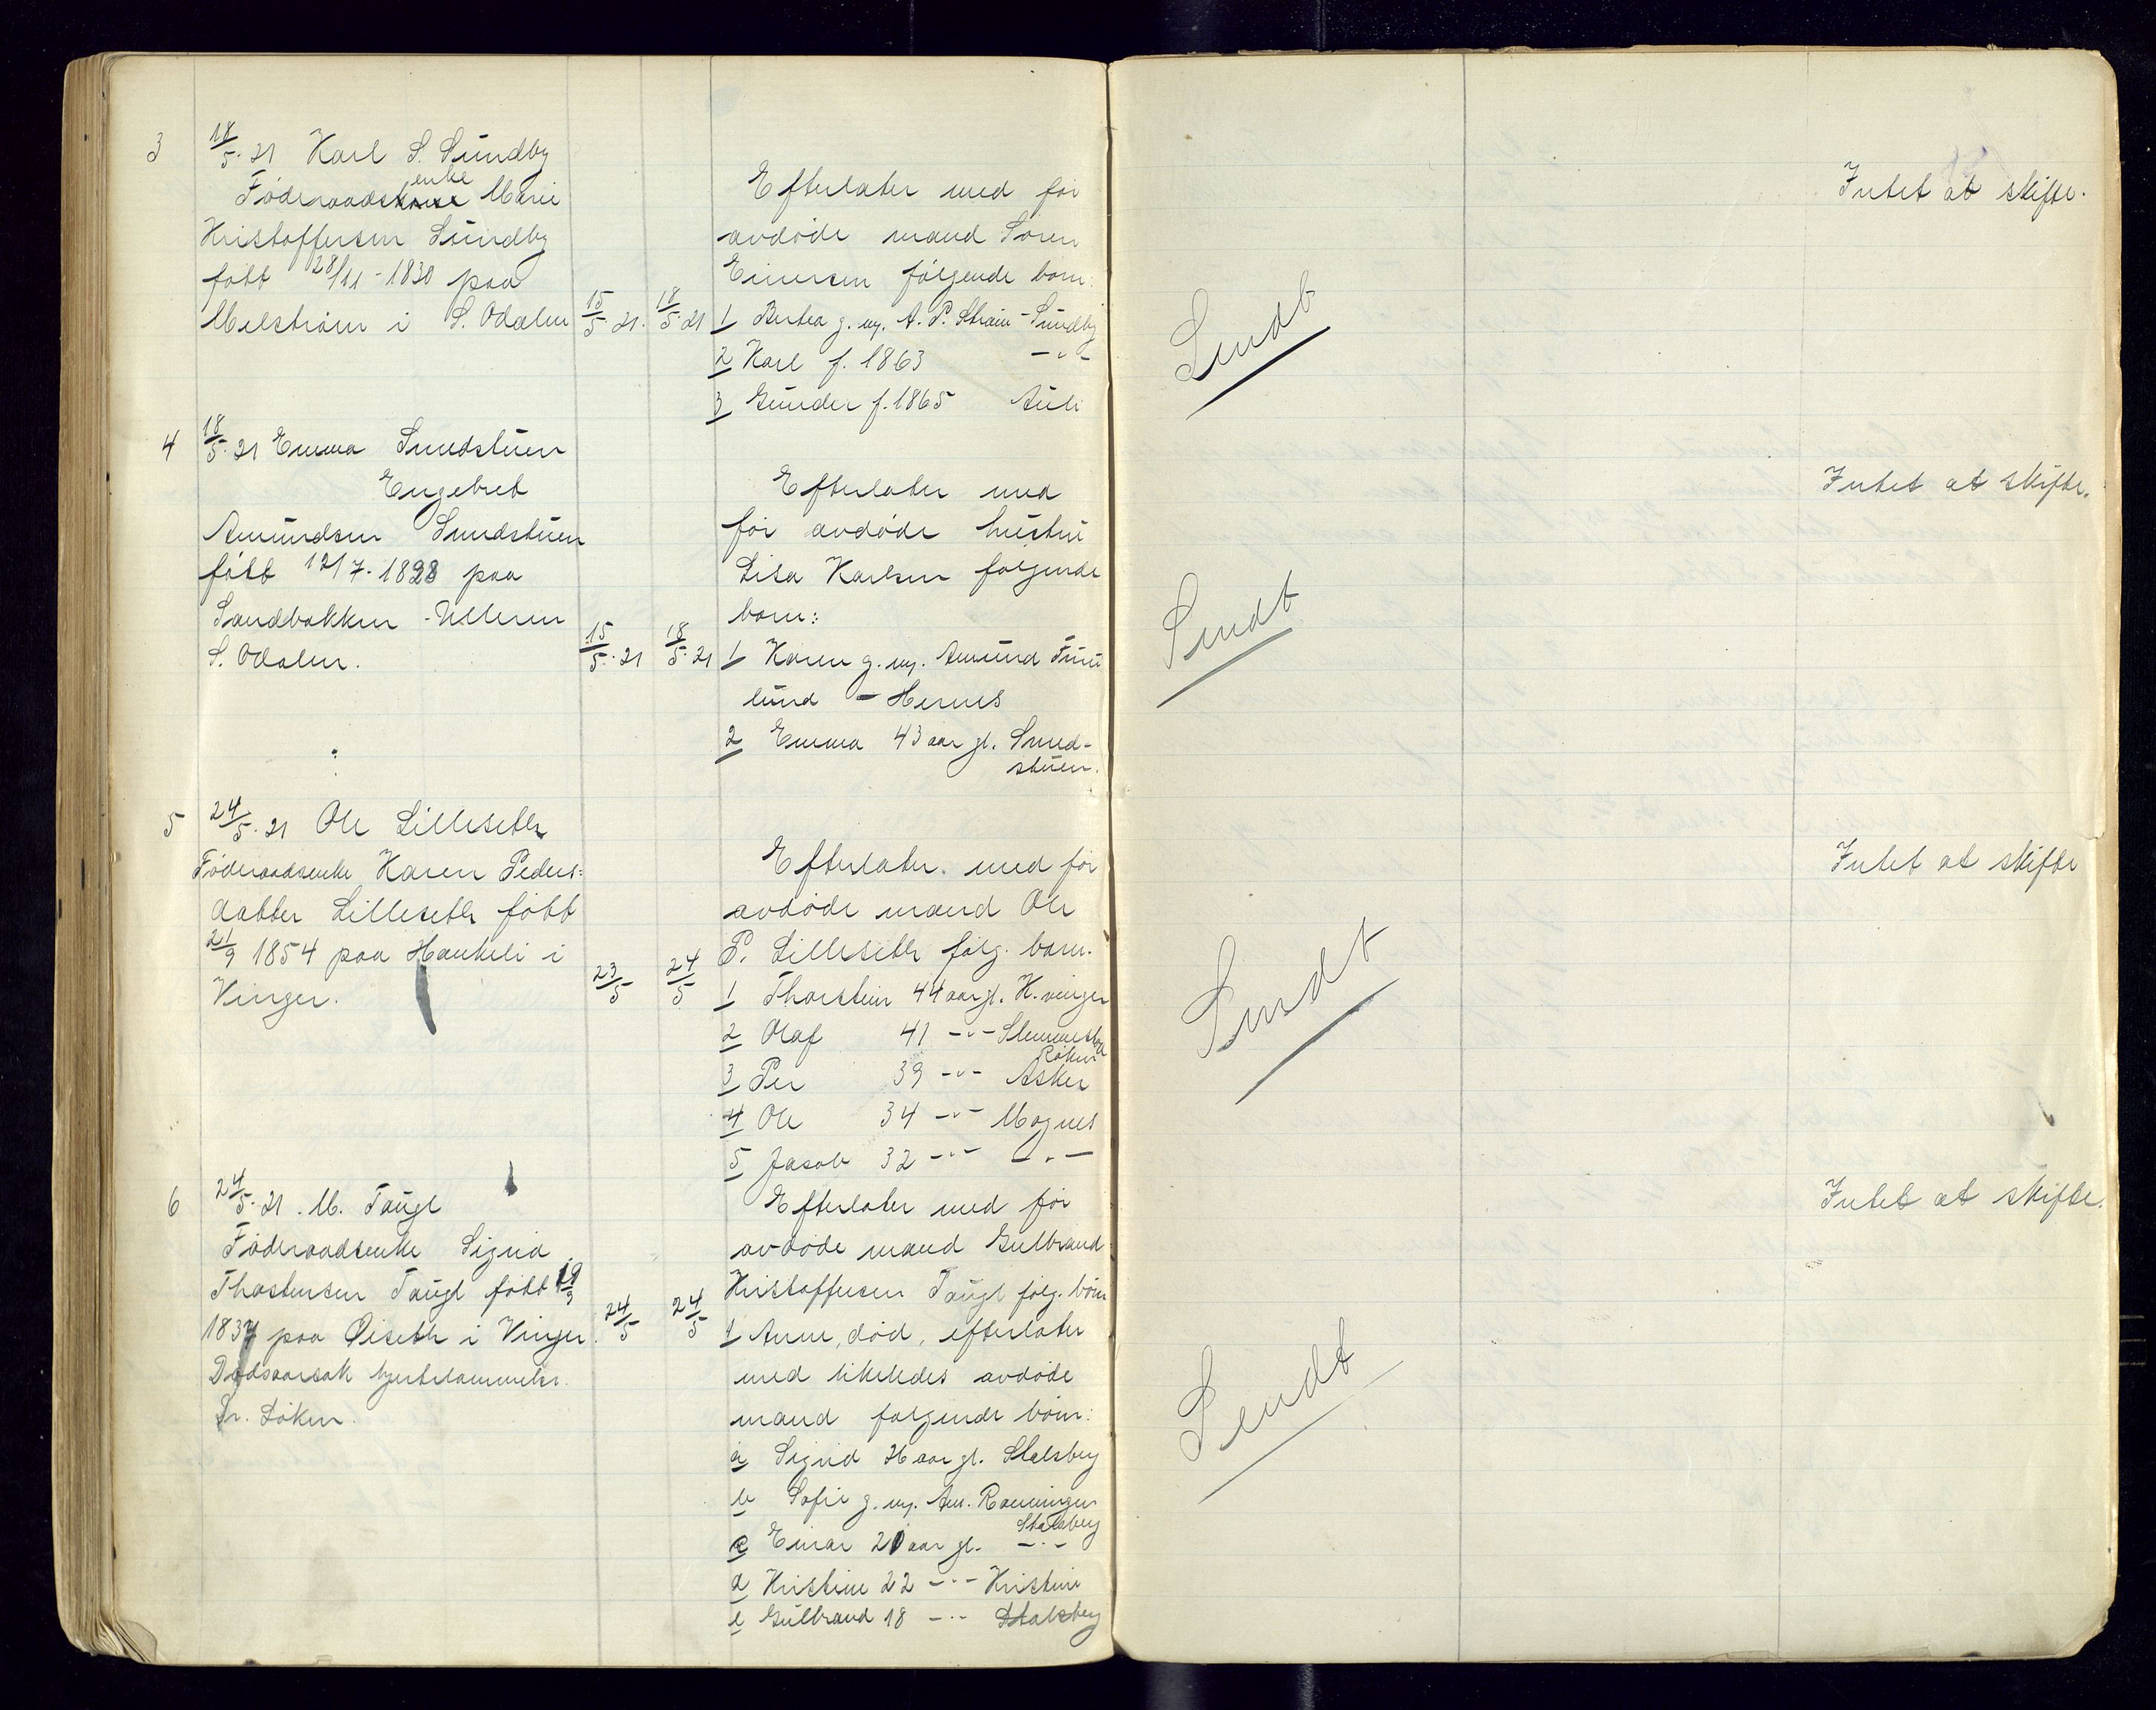 3
18/5. 21 Karl S. Sundby
Föderaadsenke Marie
Kristoffersen Sundby
født 28/11 - 1830 paa
Melström i S. Odalen
15/5. 21.
18/5. 21
Efterlater med før
avdøde mand Søren
Einersen følgende børn:
1 Bertea g. m. A. P. Strøm - Sundby
2 Karl f. 1863 - " -
3 Gunder f. 1865 Auli
Sendt
Intet at skifte.
4
18/5. 21 Emma Smedstuen
Engebret
Amundsen Smedstuen
født 12/7. 1828 paa
Sandbakken - Ulleren
S. Odalen.
15/5. 21
18/5. 21
Efterlater med
før avdøde hustru
Lisa Karlsen følgende
børn:
1 Karen g. m. Amund
lund - Hernes
2 Emma 43 aar gl. Smed-
stuen.
Sendt
Intet at skifte.
5
24/5. 21 Ole Lilleseth
Föderaadsenke Karen Peders=
datter Lilleseth født
21/9 1854 paa Haukeli i
Vinger.
23/5
24/5
Efterlater. med før
avdøde mand Ole
P. Lilleseth følg. børn.
1 Thorstein 44 aar gl. K.vinger
2 Olaf 41 - " - Slemmestad
Røken
3 Per 39 - " - Asker
4 Ole 34 - " - Magnes
5 Jacob 32 - " - - " -
Sendt
Intet at skifte
6
24/5. 21. M. Taugl
Föderaadsenke Sigrid
Thostensen Taugl født 19/9
1837 paa Øiseth i Vinger.
Dødsaarsak hjertelammelse.
Dr. Løken.
24/5
24/5
Efterlater med før
avdøde mand Gulbrand
Kristoffersen Taugl følg. børn
1 Anne, død, efterlater
med likeledes avdøde
mand følgende børn:
a Sigrid 26 aar gl. Stalsberg
b Sofie g. m. Am. Rønningen
Stalsberg
c Einar 21 aar gl. - " -
d Kristine 22 - " - Kristine
e Gulbrand 18 - " - Stalsberg
Sendt
Intet at skifte.